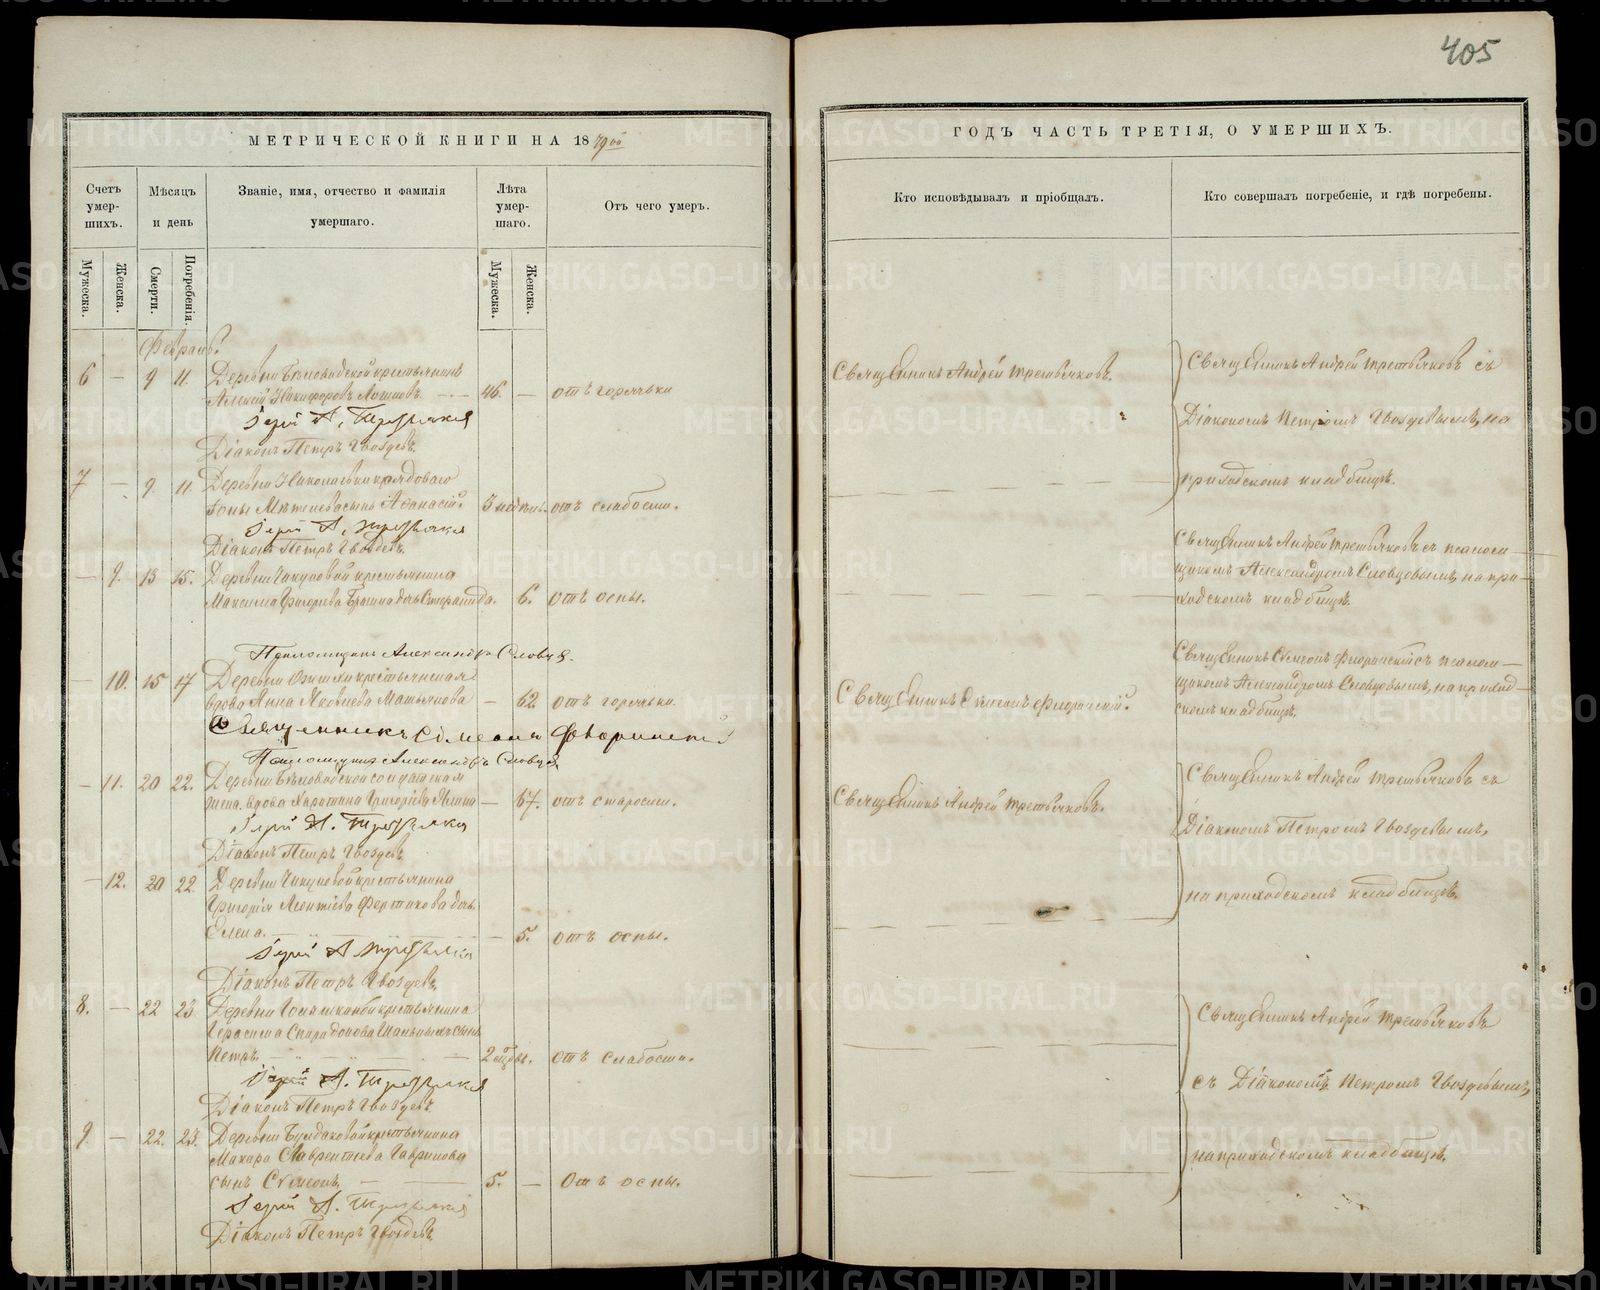 405
МЕТРИЧЕСКОЙ КНИГИ НА 1879ой
ГОДЪ ЧАСТЬ ТРЕТІЯ, О УМЕРШИХЪ.
Счетъ умер-шихъ.
Мѣсяцъ и день
Званіе, имя, отчество и фамилія умершаго.
Лѣта умер-шаго.
Отъ чего умеръ.
Кто исповѣдывалъ и пріобщалъ.
Кто совершалъ погребеніе, и гдѣ погребены.
Мужеска.
Женска.
Смерти.
Погребенія.
Мужеска.
Женска.
Февраль.
6 — 9 11. Деревни крестьянинъ
Алексій Никифоровъ 46. — отъ горячки
Священникъ Андрей Третьяковъ.
Священникъ Андрей Третьяковъ съ
Діакономъ Петромъ Гвоздевымъ, на
приходскомъ кладбищѣ.
Іерей А. Третьяковъ
Діаконъ Петръ Гвоздевъ.
7 — 9. 11. Деревни Николаевки рядоваго
сынъ Афанасій. 3 недѣль. отъ слабости.
Іерей А. Третьяковъ
Діаконъ Петръ Гвоздевъ.
— 9. 13 15. Деревни крестьянина
Максима Григорьева дочь 6. отъ оспы.
Священникъ Андрей Третьяковъ съ псалом-
щикомъ Александромъ Словцовымъ, на при-
ходскомъ кладбищѣ.
Псаломщикъ Александръ Словцовъ.
— 10. 15 17 Деревни крестьянская
вдова Анна Яковлева — 62 отъ горячки.
Священникъ Симеонъ Флоринскій.
Священникъ Симеонъ Флоринскій съ псалом-
щикомъ Александромъ Словцовымъ, на приход-
скомъ кладбищѣ.
Священникъ Симеонъ Флоринскій
Псаломщикъ Александръ Словцовъ
— 11. 20 22. Деревни солдатская
вдова Григорьева — 67. отъ старости.
Священникъ Андрей Третьяковъ.
Священникъ Андрей Третьяковъ съ
Діакономъ Петромъ Гвоздевымъ,
на приходскомъ кладбищѣ.
Іерей А. Третьяковъ
Діаконъ Петръ Гвоздевъ
— 12. 20 22. Деревни крестьянина
Григорія Леонтіева дочь
Елена. — 5. отъ оспы.
Іерей А Третьяковъ
Діаконъ Петръ Гвоздевъ.
8. — 22 23 Деревни крестьянина
Герасима Спиридонова сынъ
Петръ. 2 отъ слабости.
Священникъ Андрей Третьяковъ
съ Діакономъ Петромъ Гвоздевымъ,
на приходскомъ кладбищѣ.
Іерей А. Третьяковъ
Діаконъ Петръ Гвоздевъ.
9. — 22. 23. Деревни крестьянина
Макара Лаврентьева Гаврилова
сынъ Симеонъ. 5. — Отъ оспы.
Іерей А. Третьяковъ
Діаконъ Петръ Гвоздевъ.
METRIKI.GASO-URAL.RU